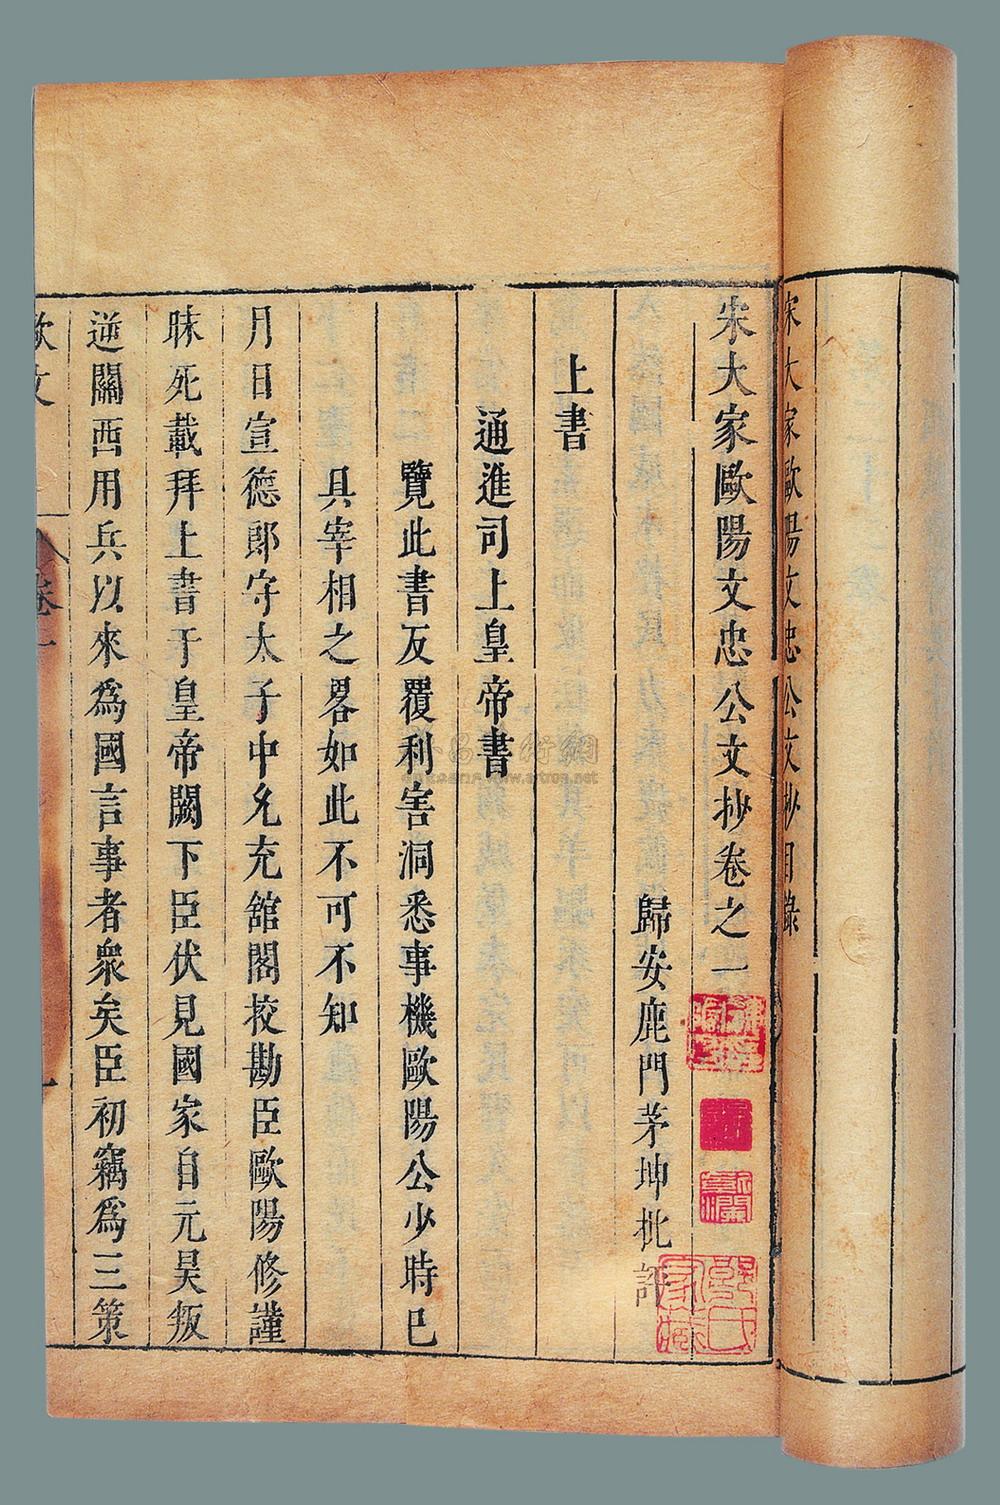 宋大家歐陽文忠公文抄目錄
宋大家歐陽文忠公文抄卷之一
歸安鹿門茅坤批評
上書
通進司上皇帝書
覽此書反覆利害洞悉事機歐陽公少時已
具宰相之畧如此不可不知
月日宣德郎守太子中允充舘閣挍勘臣歐陽修謹
昧死載拜上書于皇帝闕下臣伏見國家自元昊叛
逆關西用兵以來爲國言事者衆矣臣初竊爲三策
歐文
卷一
一